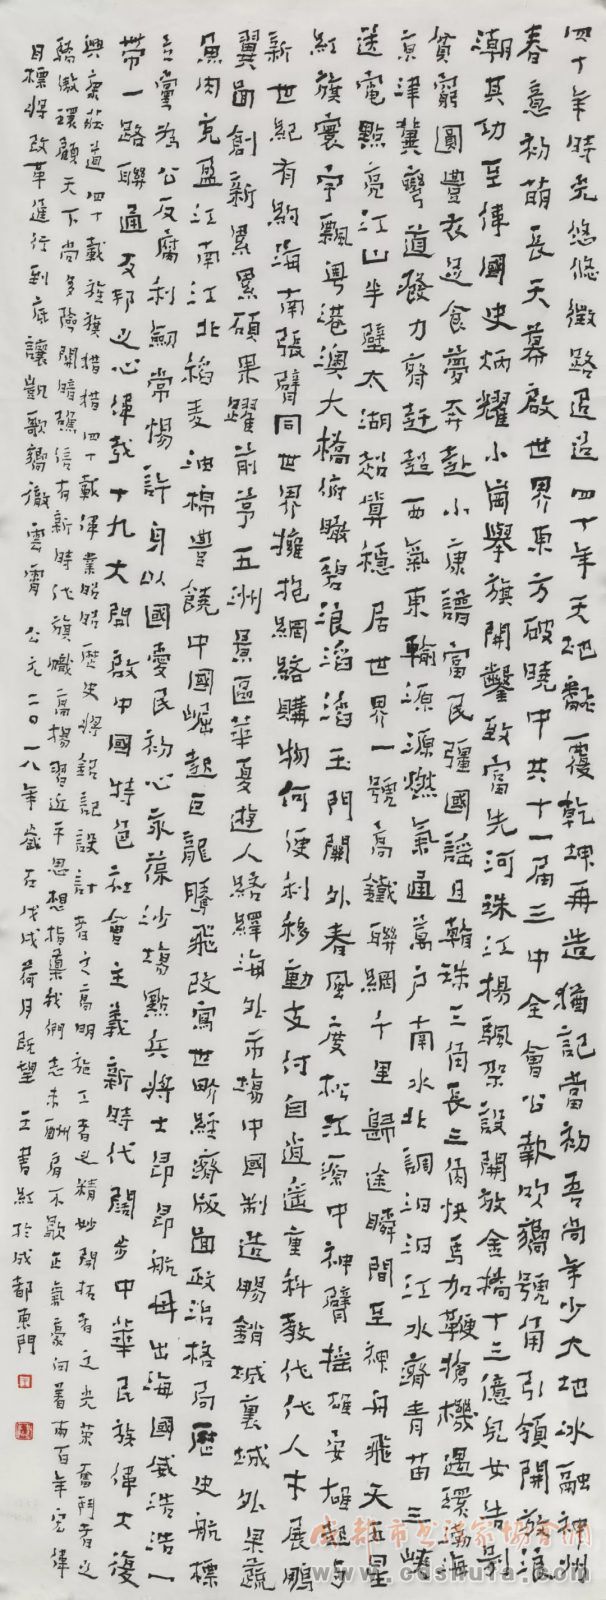 四十年時光悠悠徵路迢迢四十年天地翻覆乾坤再造猶記當初吾尚年少大地冰融神州
春意初萌長天幕啟世界東方破曉中共十一屆三中全會公報吹響號角引領開放浪
潮其功至偉國史炳耀小崗舉旗開鑿致富先河珠江揚驅架設開放金橋十三億兒女告別
貧窮圓豐衣足食夢奔赴小康譜富民彊國謠且翰珠三角長三角快馬加鞭搶機遇環渤海
京津冀彎道發力齊趕超西氣東輸源源燃氣通萬户南水北調汩汩江水濟青苗三峽
送電點亮江山半壁太湖超算穩居世界一號高鐵聯網千里歸途瞬間至神舟飛天五星
紅旗寰宇飄粵港澳大橋俯瞰碧浪滔滔玉門關外春風度松江源中神臂搖雄安崛起與
新世紀有約海南張臂同世界擁抱網絡購物何便利移動支付自逍遥重科教代代人才展鵬
翼面創新累累碩果躍前茅五洲景區華夏遊人絡繹海外市場中國制造暢銷城裏城外果蔬
魚肉克盈江南江北稻麦油棉豊饒中國崛起巨龍騰飛改寫世界經濟版面政治格局歷史航標
立黨為公反腐利劍常惕許身以國愛民初心永葆沙場點兵將士昂昂航母出海國威浩浩一
帶一路聯通友邦之心偉哉十九大開啟中國特色社會主義新時代闊步中華民族偉大復
興康莊道四十載旌旗揩揩四十載偉業昭昭歷史將銘記設計者之高明施工者之精妙開拓者之光荣奮鬥者之
驕傲環顧天下尚多險關暗礁信有新時代旗幟高揚習近平思想指稾我們志未酬肩不歇正氣豪向着兩百年宏偉
目標將改革進行到底讓凱歌響徹雲霄 公元二〇一八年歲在戊戌荷月既望 王書紅於成都東門
成都市书法家协会网
www.cdshufa.com